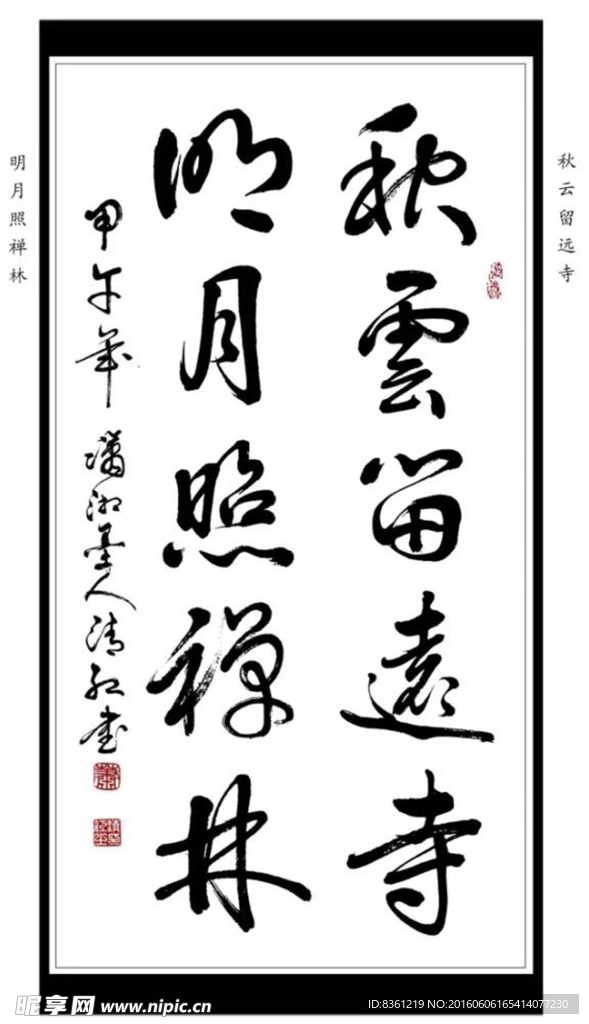 秋云留远寺
秋雲留遠寺
明月照禅林
甲午年 潇湘墨人清红书
明月照禅林
昵享网 www.nipic.cn
ID:8361219 NO:20160606165414077230